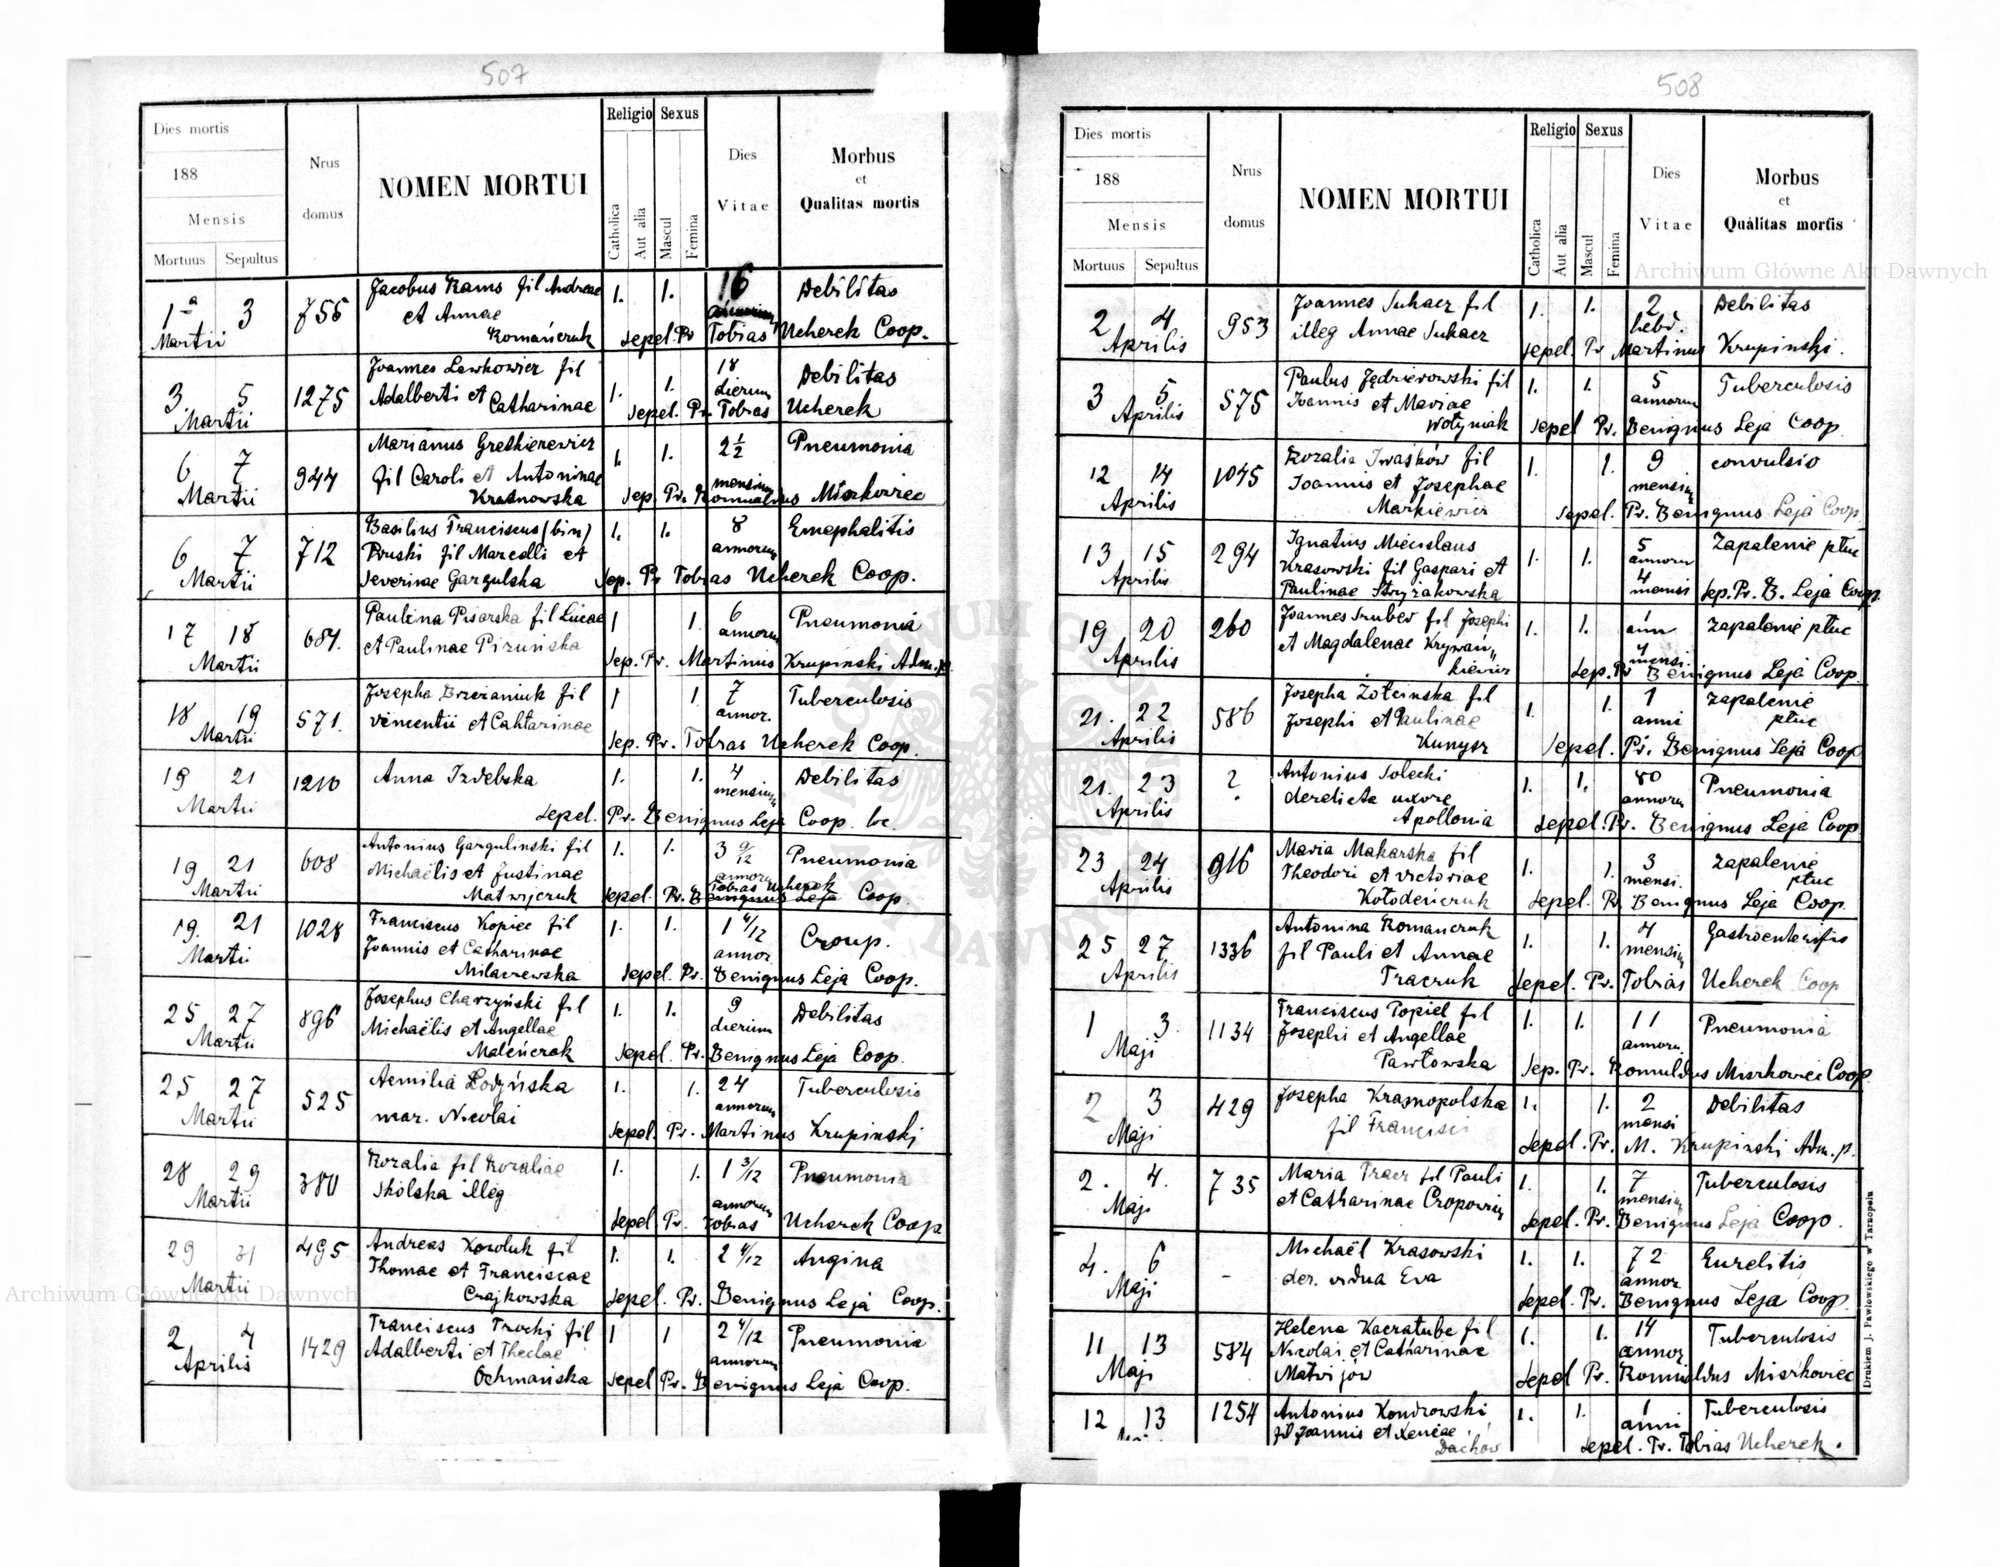 507
Dies mortis
188
Mensis
Mortuus Sepultus
Nrus domus
NOMEN MORTUI
Religio Sexus
Catholica Aut alia Mascul Femina
Dies Vitae
Morbus et Qualitas mortis
1a 3 756 Jacobus Rams fil Andreae 1. 1. 16 Debilitas
Martii et Annae
Romańczuk Sepel. Pr Tobias Ucherek Coop.
3 5 1275 Joannes Lewkowicz fil 1. 1. 18 Debilitas
Martii Adalberti et Catharinae dierum
Sepel. Pr. Tobias Ucherek
6 7 944 Marianus Gretkierewicz 1. 1. 2 1/2 Pneumonia
Martii fil Caroli et Antoninae mensium
Krasnowska Sep. Pr. Romualdus Miszkowiec
6 7 712 Basilius Franciscus (bin) 1. 1. 8 Emephalitis
Martii Pruski fil Marcelli et annorum
Severinae Gargulska Sep. Pr Tobias Ucherek Coop.
17 18 684. Paulina Pisarska fil Lucae 1 1. 6 Pneumonia
Martii et Paulinae Piruńska annorum
Sep. Pr. Martinus Krupinski Adm. p.
18 19 571. Josepha Brzezaniuk fil 1 1. 7 Tuberculosis
Martii Vincentii et Cahtarinae annor.
Sep. Pr. Tobias Ucherek Coop.
19 21 1210 Anna Izdebska 1. 1. 4 Debilitas
Martii mensium
Sepel. Pr. Benignus Leja Coop. loc.
19 21 608 Antonius Gargulinski fil 1. 1. 3 9/12 Pneumonia
Martii Michaëlis et Justinae annorum
Matwijczuk Tobias Ucherek
Sepel. Pr. Benignus Leja Coop
19. 21 1028 Franciscus Kopiec fil 1. 1. 1 4/12 Croup.
Martii Joannis et Catharinae annor.
Milaczewska Sepel. Pr. Benignus Leja Coop.
25 27 896 Josephus Charzyński fil 1. 1. 9 Debilitas
Martii Michaëlis et Angellae dierum
Maleńczak Sepel. Pr. Benignus Leja Coop.
25 27 525 Aemilia Łodyńska 1. 1. 24 Tuberculosis
Martii mar. Nicolai annorum
Sepel. Pr. Martinus Krupinski
28 29 380 Rozalia fil Rozaliae 1. 1. 1 3/12 Pneumonia
Martii Skolska illeg annorum
Sepel Pr. Tobias Ucherek Coop
29 31 495 Andreas Kowluk fil 1. 1. 2 4/12 Angina
Martii Thomae et Franciscae
Czajkowska Sepel. Pr. Benignus Leja Coop.
2 4 1429 Franciscus Trochi fil 1 1 2 4/12 Pneumonia
Aprilis Adalberti et Theclae annorum
Ochmańska Sepel Pr. Benignus Leja Coop.
508
Dies mortis
188
Mensis
Mortuus Sepultus
Nrus domus
NOMEN MORTUI
Religio Sexus
Catholica Aut alia Mascul Femina
Dies Vitae
Morbus et Qualitas mortis
2 4 953 Joannes Sukacz fil 1. 1. 2 Debilitas
Aprilis illeg Annae Sukacz hebd.
Sepel. Pr Martinus Krupinski.
3 5 575 Paulus Jędrzerowski fil 1. 1. 5 Tuberculosis
Aprilis Joannis et Mariae annorum
Wołyniak Sepel Pr. Benignus Leja Coop
12 14 1045 Rozalia Iwasków fil 1. 1. 9 convulsio
Aprilis Joannis et Josephae mensium
Markiewicz Sepel. Pr. Benignus Leja Coop.
13 15 294 Ignatius Miecislaus 1. 1. 5 Zapalenie płuc
Aprilis Krasowski fil Gaspari et annorum
Paulinae Stryżakowska 4 mensi Sep. Pr. B. Leja Coop.
19 20 260 Joannes Gruber fil Josephi 1. 1. 1 Zapalenie płuc
Aprilis et Magdalenae Krywań„ ann 4 mensi.
kiewicz Sep. Pr Benignus Leja Coop.
21. 22 586 Josepha Żołcinska fil 1. 1. 1 Zapalenie
Aprilis Josephi et Paulinae anni płuc
Kunysz Sepel. Pr. Benignus Leja Coop
21. 23 ? Antonius Solecki 1. 1. 80 Pneumonia
Aprilis derelicta uxore annorum
Apollonia Sepel. Pr. Benignus Leja Coop.
23 24 916 Maria Makarska fil 1. 1. 3 Zapalenie
Aprilis Theodori et Victoriae mensi. płuc
Kołodeńczuk Sepel. Pr Benignus Leja Coop.
25 27 1336 Antonina Romanczuk 1. 1. 4 Gastroenteritis
Aprilis fil Pauli et Annae mensium
Traczuk Sepel. Pr. Tobias Ucherek Coop
1 3. 1134 Franciscus Popiel fil 1. 1. 11 Pneumonia
Maji Josephi et Angellae annoru.
Pawłowska Sep. Pr. Romuldus Miszkowiec Coop.
2 3 429 Josepha Krasnopolska 1. 1. 2 Debilitas
Maji fil Francisci mensi
Sepel. Pr. M. Krupinski Adm. p.
2. 4. 735 Maria Tracz fil Pauli 1. 1. 7 Tuberculosis
Maji et Catharinae Cropowicz mensium
Sepel. Pr. Benignus Leja Coop.
4. 6 - Michaël Krasowski 1. 1. 72 Eurelitis
Maji der. vidua Eva annor
Sepel. Pr. Benignus Leja Coop.
11 13 584 Helena Kaczatuba fil 1. 1. 14 Tuberculosis
Maji Nicolai et Catharinae annor
Matwijów Sepel Pr. Romualdus Miszkowiec
12 13 1254 Antonius Kondrowski 1. 1. 1 Tuberculosis
fil Joannis et Xeniae anni
Dachów Sepel. Pr. Tobias Ucherek.
Drukiem J. Pawłowskiego w Tarnopolu
Archiwum Główne Akt Dawnych
Archiwum Główne Akt Dawnych
ARCHIWUM GŁÓWNE AKT DAWNYCH